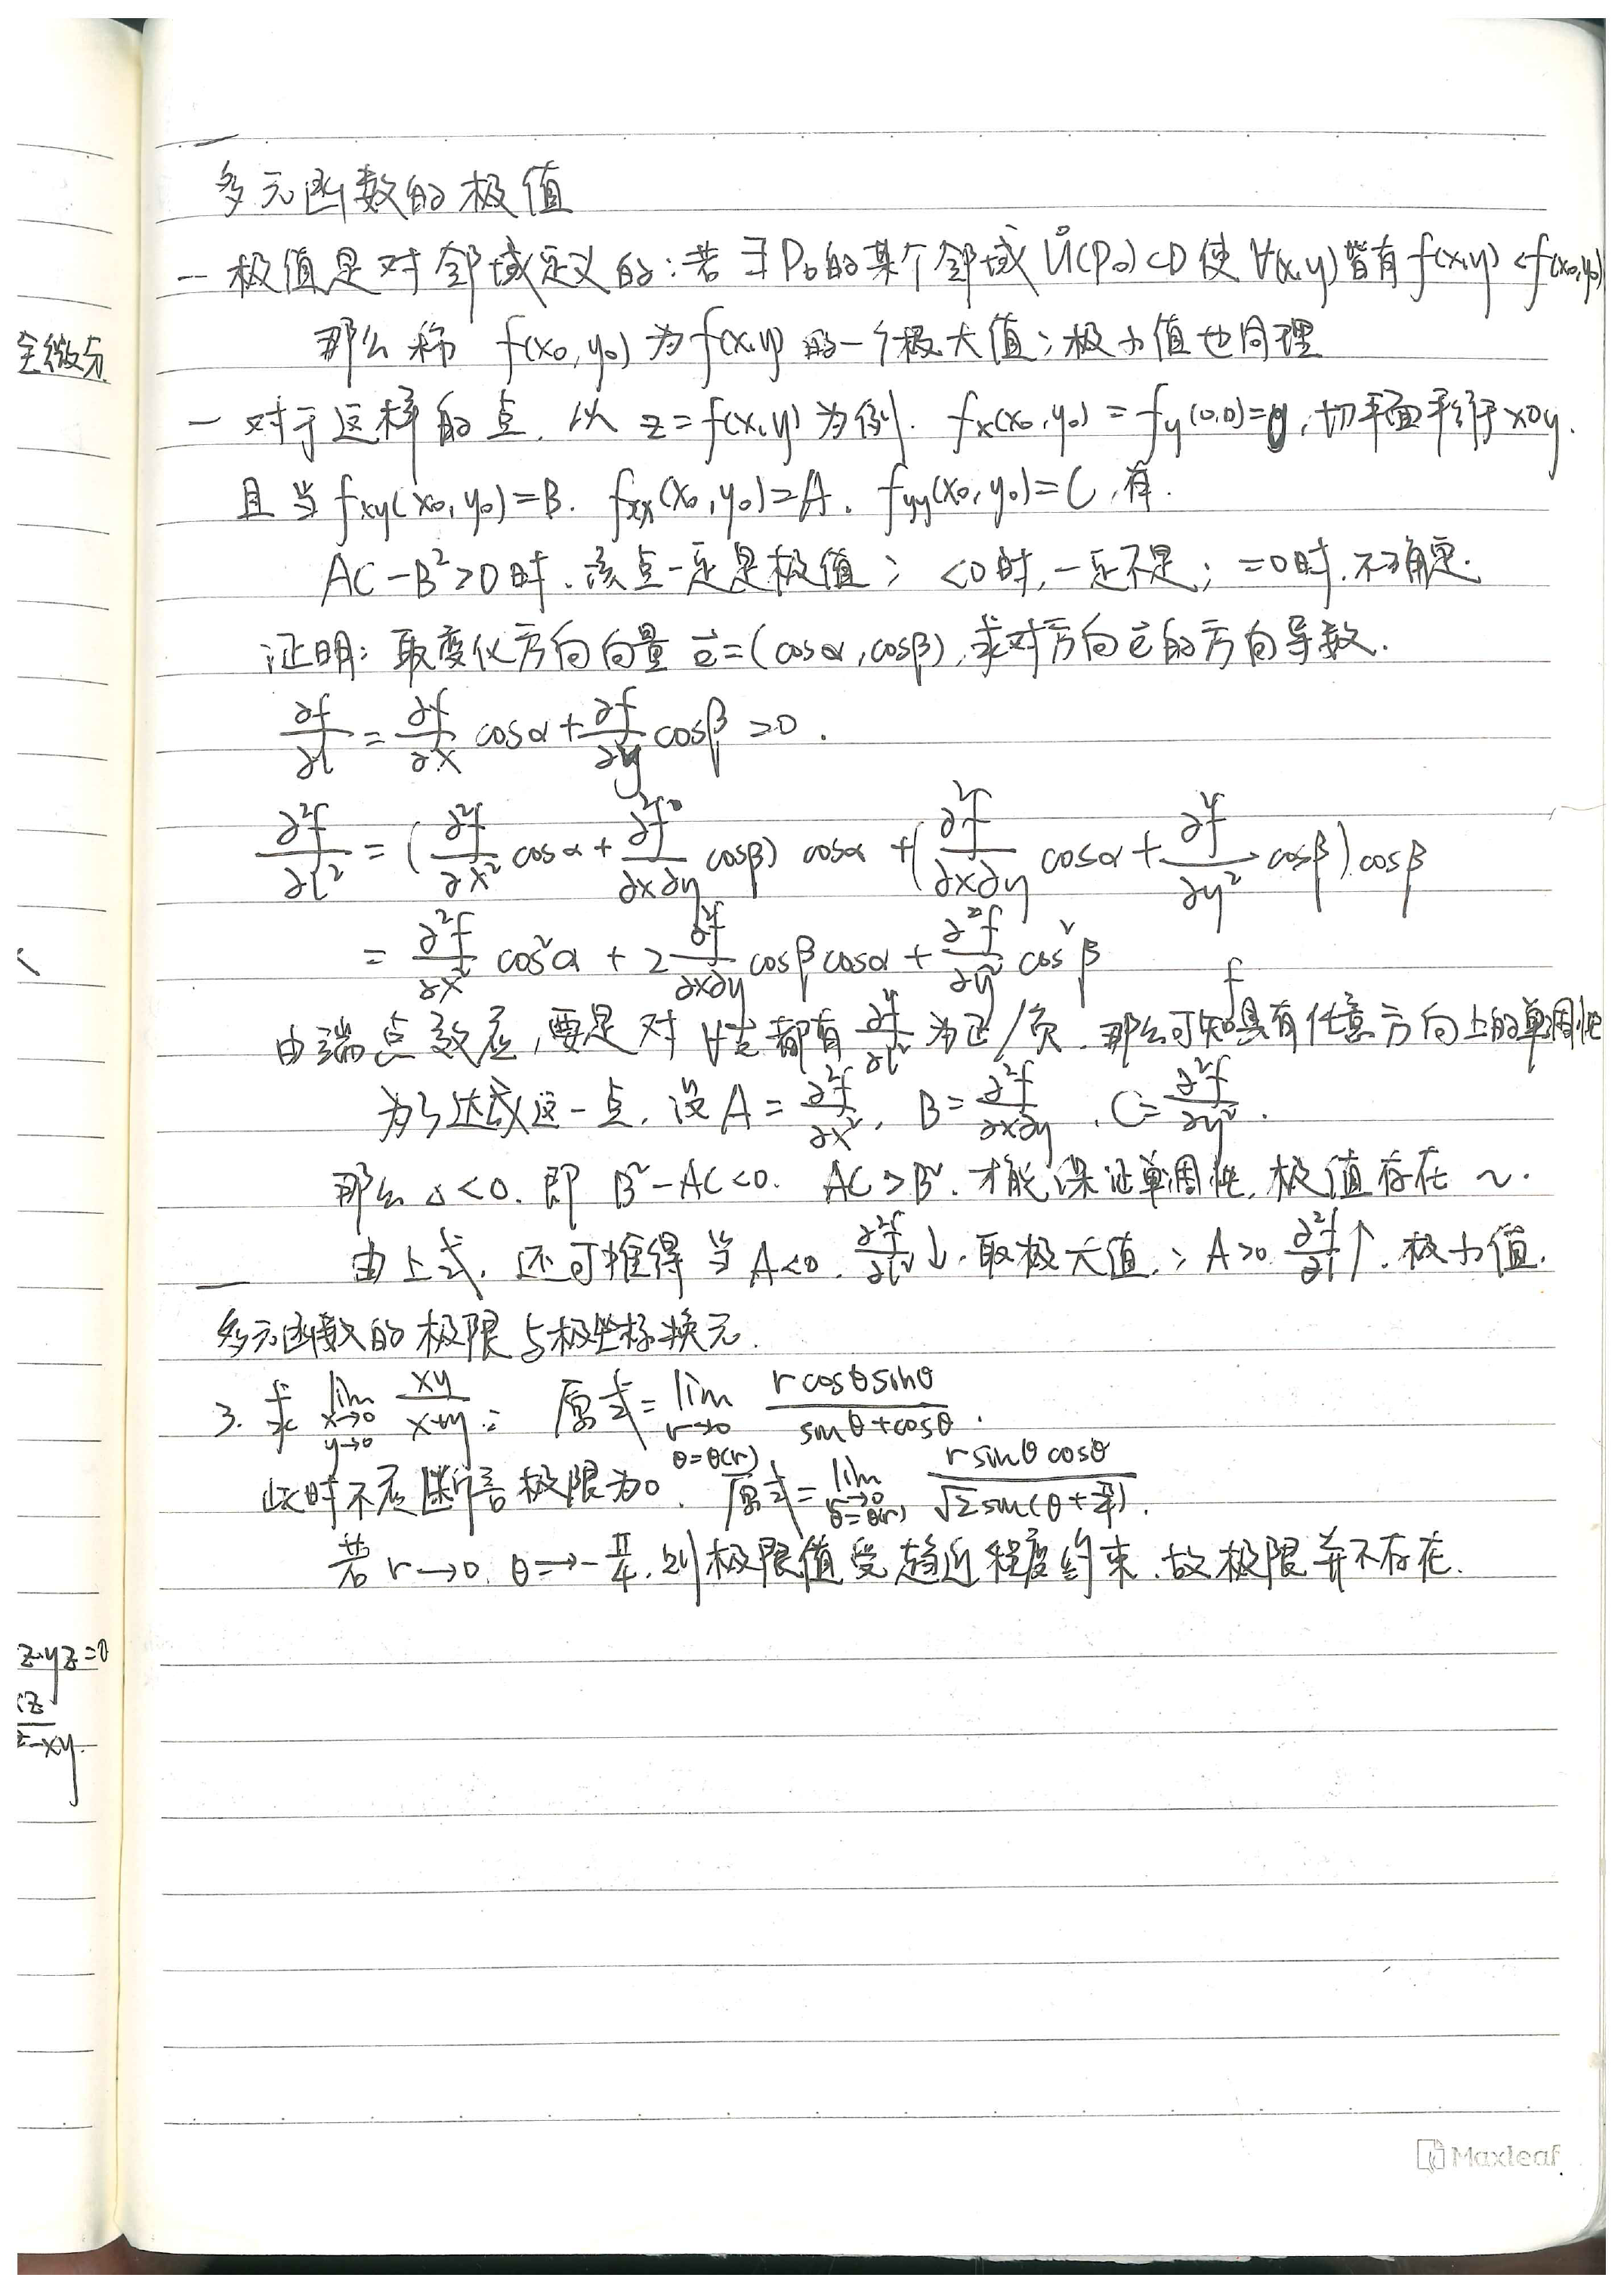 多元函数的极值
一 极值是对邻域定义的:若∃P₀的某个邻域 Ů(P₀)⊂D 使∀(x,y)皆有f(x,y)<f(x₀,y₀)
那么称 f(x₀,y₀)为f(x,y)的一个极大值;极小值也同理
一 对于这样的点.以 z=f(x,y)为例. fx(x₀,y₀)=fy(0,0)=0,切平面平行于xOy.
且当fxy(x₀,y₀)=B. fxx(x₀,y₀)=A. fyy(x₀,y₀)=C,有.
AC-B²>0时.该点一定是极值; <0时,一定不是; =0时.不确定.
证明:取变化方向向量 e⃗=(cosα,cosβ),求对方向e⃗的方向导数.
∂f/∂l = ∂f/∂x cosα + ∂f/∂y cosβ =0.
∂²f/∂l² = (∂²f/∂x² cosα + ∂²f/∂x∂y cosβ) cosα + (∂²f/∂x∂y cosα + ∂²f/∂y² cosβ) cosβ
= ∂²f/∂x² cos²α + 2 ∂²f/∂x∂y cosβcosα + ∂²f/∂y² cos²β
由端点效应,要是对∀e⃗都有 ∂²f/∂l² 为正/负.那么可知f具有任意方向上的单调性
为了达成这一点.设A=∂²f/∂x², B=∂²f/∂x∂y, C=∂²f/∂y².
那么Δ<0.即 B²-AC<0. AC>B².才能保证单调性,极值存在~.
由上式.还可推得当A<0. ∂²f/∂l²↓.取极大值.; A>0. ∂²f/∂l²↑.极小值.
多元函数的极限与极坐标换元.
3. 求 lim x→0 y→0 xy/(x+y): 原式= lim r→0 θ=θ(r) rcosθsinθ/(sinθ+cosθ).
此时不应断言极限为0. 原式= lim r→0 θ=θ(r) rsinθcosθ/(√2sin(θ+π/4)).
若r→0. θ→-π/4.则极限值受趋近程度约束.故极限并不存在.
全微分.
z-yz=0
-xy.
Maxleaf